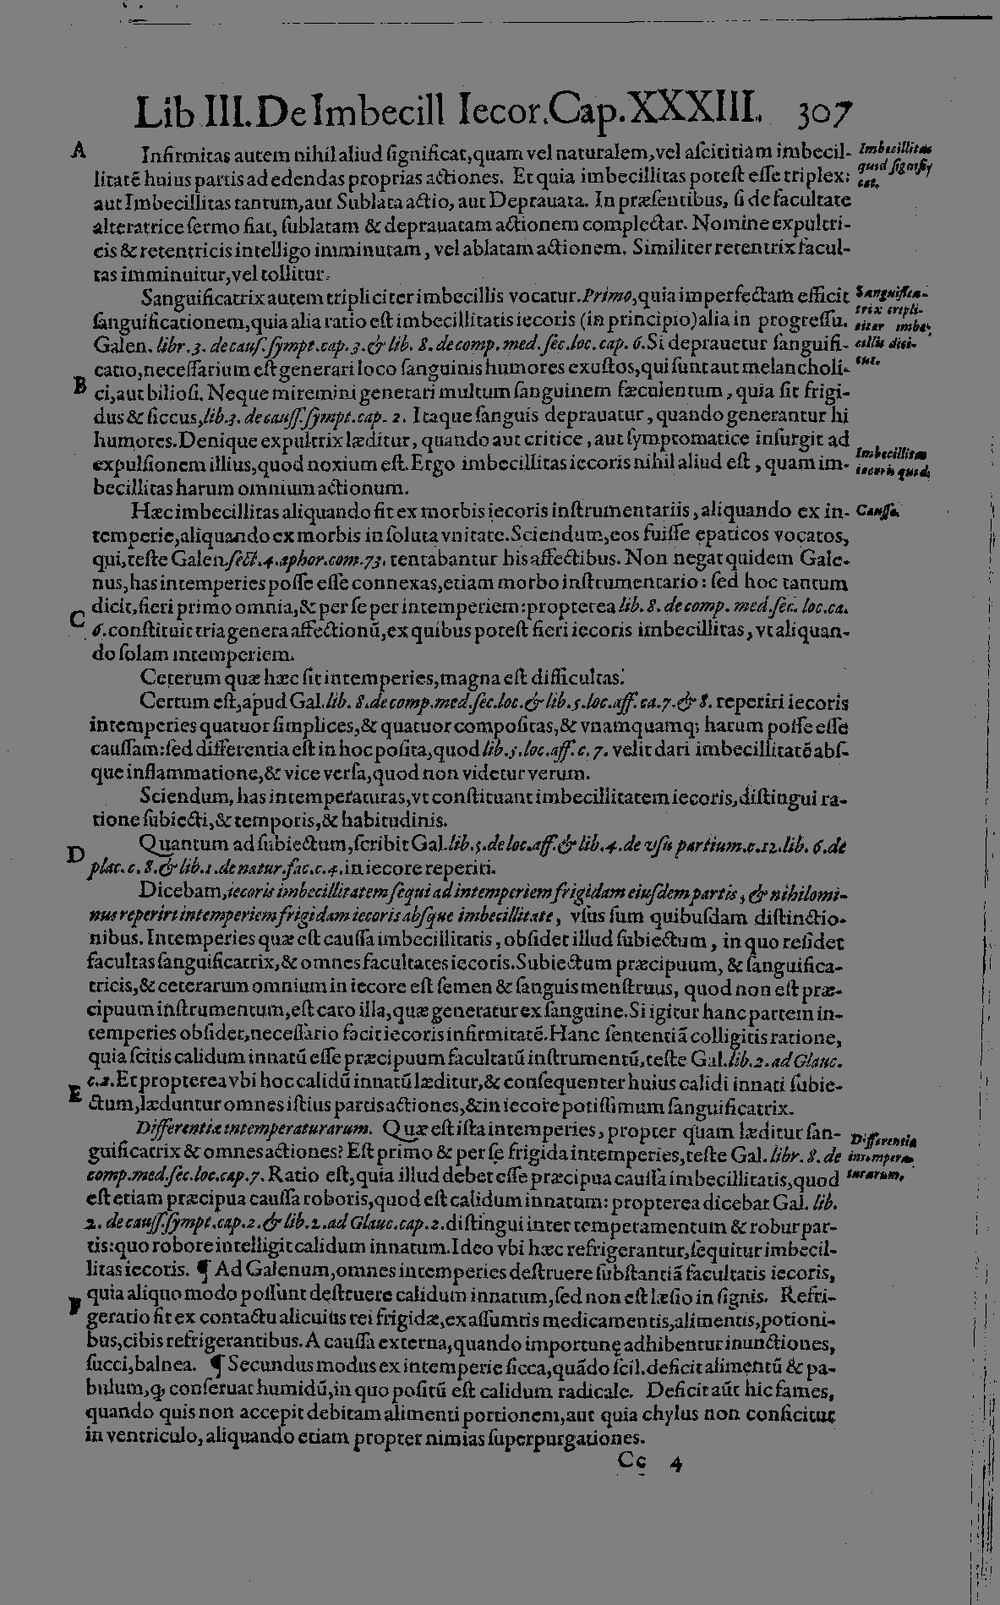 Lib III. De Imbecill Iecor. Cap. XXXIII. 307
A
Infirmitas autem nihil aliud ſignificat, quam vel naturalem, vel aſcititiam imbecil-
litatē huius partis ad edendas proprias actiones. Et quia imbecillitas poteſt eſſe triplex:
aut Imbecillitas tantum, aut Sublata actio, aut Deprauata. In præſentibus, ſi de facultate
alteratrice ſermo fiat, ſublatam & deprauatam actionem complectar. Nomine expultri-
cis & retentricis intelligo imminutam, vel ablatam actionem. Similiter retentrix facul-
tas imminuitur, vel tollitur.
Imbecillitas
quid ſignifi-
cat.
Sanguificatrix autem tripliciter imbecillis vocatur. Primo, quia imperfectam efficit
ſanguificationem, quia alia ratio eſt imbecillitatis iecoris (in principio) alia in progreſſu.
Galen. libr. 3. de cauſ. ſympt. cap. 3. & lib. 8. de comp. med. ſec. loc. cap. 6. Si deprauetur ſanguifi-
catio, neceſſarium eſt generari loco ſanguinis humores exuſtos, qui ſunt aut melancholi-
B
ci, aut bilioſi. Neque miremini generari multum ſanguinem fæculentum, quia ſit frigi-
dus & ſiccus, lib. 3. de cauſſ. ſympt. cap. 2. Itaque ſanguis deprauatur, quando generantur hi
humores. Denique expultrix læditur, quando aut critice, aut ſymptomatice inſurgit ad
expulſionem illius, quod noxium eſt. Ergo imbecillitas iecoris nihil aliud eſt, quam im-
becillitas harum omnium actionum.
Sanguifica-
trix tripli-
citer imbe-
cillis dici-
tur.
Imbecillitas
iecoris quid.
Hæc imbecillitas aliquando fit ex morbis iecoris inſtrumentariis, aliquando ex in-
temperie, aliquando ex morbis in ſoluta vnitate. Sciendum, eos fuiſſe epaticos vocatos,
qui, teſte Galen. ſect. 4. aphor. com. 73. tentabantur his affectibus. Non negat quidem Gale-
nus, has intemperies poſſe eſſe connexas, etiam morbo inſtrumentario: ſed hoc tantum
dicit, fieri primo omnia, & per ſe per intemperiem: propterea lib. 8. de comp. med. ſec. loc. ca.
C
6. conſtituit tria genera affectionū, ex quibus poteſt fieri iecoris imbecillitas, vt aliquan-
do ſolam intemperiem.
Cauſſa.
Ceterum quæ hæc ſit intemperies, magna eſt difficultas.
Certum eſt, apud Gal. lib. 8. de comp. med. ſec. loc. & lib. 5. loc. aff. ca. 7. & 8. reperiri iecoris
intemperies quatuor ſimplices, & quatuor compoſitas, & vnamquamq; harum poſſe eſſe
cauſſam: ſed differentia eſt in hoc poſita, quod lib. 5. loc. aff. c. 7. velit dari imbecillitatē abſ-
que inflammatione, & vice verſa, quod non videtur verum.
Sciendum, has intemperaturas, vt conſtituant imbecillitatem iecoris, diſtingui ra-
tione ſubiecti, & temporis, & habitudinis.
D
Quantum ad ſubiectum, ſcribit Gal. lib. 5. de loc. aff. & lib. 4. de vſu partium. c. 12. lib. 6. de
plac. c. 8. & lib. 1. de natur. fac. c. 4. in iecore reperiri.
Dicebam, iecoris imbecillitatem ſequi ad intemperiem frigidam eiuſdem partis, & nihilomi-
nus reperiri intemperiem frigidam iecoris abſque imbecillitate, vſus ſum quibuſdam diſtinctio-
nibus. Intemperies quæ eſt cauſſa imbecillitatis, obſidet illud ſubiectum, in quo reſidet
facultas ſanguificatrix, & omnes facultates iecoris. Subiectum præcipuum, & ſanguifica-
tricis, & ceterarum omnium in iecore eſt ſemen & ſanguis menſtruus, quod non eſt præ-
cipuum inſtrumentum, eſt caro illa, quæ generatur ex ſanguine. Si igitur hanc partem in-
temperies obſidet, neceſſario facit iecoris infirmitatē. Hanc ſententiā colligitis ratione,
quia ſcitis calidum innatū eſſe præcipuum facultatū inſtrumentū, teſte Gal. lib. 2. ad Glauc.
E
c. 2. Et propterea vbi hoc calidū innatū læditur, & conſequenter huius calidi innati ſubie-
ctum, læduntur omnes iſtius partis actiones, & in iecore potiſſimum ſanguificatrix.
Differentiæ intemperaturarum. Quæ eſt iſta intemperies, propter quam læditur ſan-
guificatrix & omnes actiones? Eſt primo & per ſe frigida intemperies, teſte Gal. libr. 8. de
comp. med. ſec. loc. cap. 7. Ratio eſt, quia illud debet eſſe præcipua cauſſa imbecillitatis, quod
eſt etiam præcipua cauſſa roboris, quod eſt calidum innatum: propterea dicebat Gal. lib.
2. de cauſſ. ſympt. cap. 2. & lib. 2. ad Glauc. cap. 2. diſtingui inter temperamentum & robur par-
tis: quo robore intelligit calidum innatum. Ideo vbi hæc refrigerantur, ſequitur imbecil-
litas iecoris. ¶ Ad Galenum, omnes intemperies deſtruere ſubſtantiā facultatis iecoris,
F
quia aliquo modo poſſunt deſtruere calidum innatum, ſed non eſt læſio inſignis. Refri-
geratio fit ex contactu alicuius rei frigidæ, ex aſſumtis medicamentis, alimentis, potioni-
bus, cibis refrigerantibus. A cauſſa externa, quando importunę adhibentur inunctiones,
ſucci, balnea. ¶ Secundus modus ex intemperie ſicca, quādo ſcil. deficit alimentū & pa-
bulum, ꝙ conſeruat humidū, in quo poſitū eſt calidum radicale. Deficit aūt hic fames,
quando quis non accepit debitam alimenti portionem, aut quia chylus non conficitur
in ventriculo, aliquando etiam propter nimias ſuperpurgationes.
Differentiæ
intempera-
turarum.
Cc 4